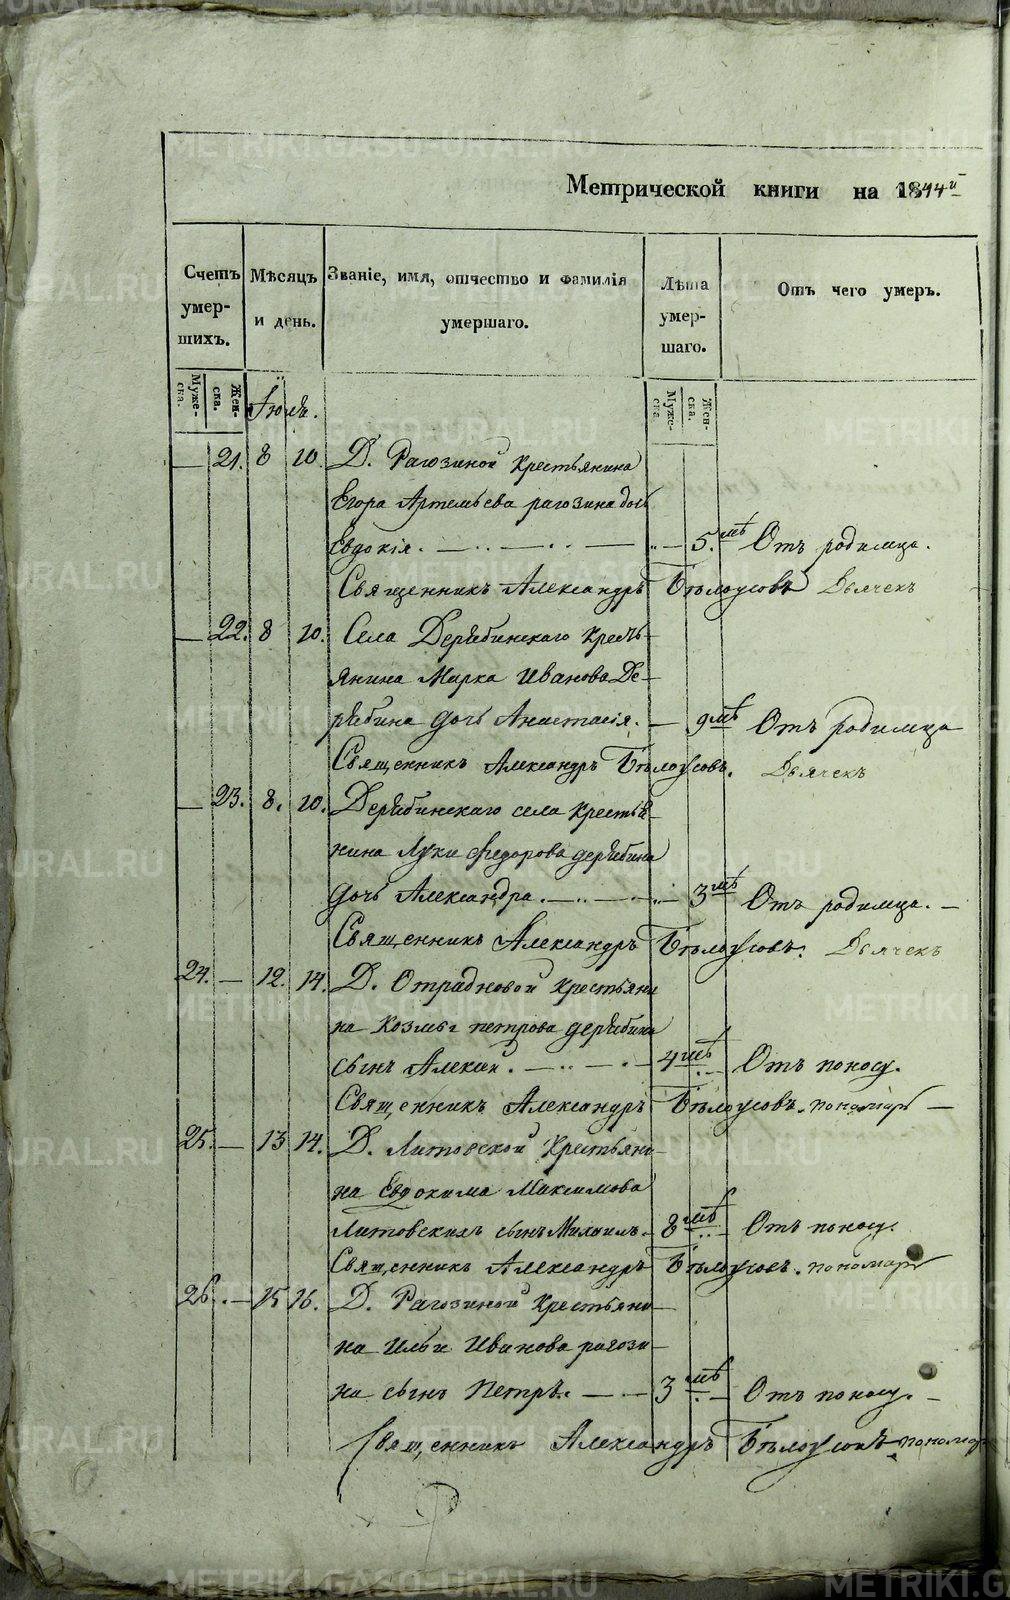 Метрической книги на 1844й
Счетъ умершихъ. Мѣсяцъ и день. Званіе, имя, отчество и фамилія умершаго. Лѣта умершаго. Отъ чего умеръ.
Муже-ска. Жен-ска. Муже-ска. Жен-ска.
Іюль.
— 21. 8 10. Д. Рагозиной крестьянина
Егора Артемьева рагозина дочь
Евдокія. 5. мѣ Отъ родимца.
Священникъ Александръ Бѣлоусовъ Дьячекъ
— 22. 8 10. Села Дерябинскаго крестьянина Марка Иванова Де-
рябина дочь Анастасія. — 9 мѣ Отъ родимца
Священникъ Александръ Бѣлоусовъ. Дьячекъ
— 23. 8. 10. Дерябинскаго села крестья-
нина Луки Федорова дерябина
дочь Александра. 3 мѣ Отъ родимца. —
Священникъ Александръ Бѣлоусовъ. Дьячекъ
24. — 12. 14. Д. Отрадновой крестьяни
на Козмы петрова дерябина
сынъ Алексій. 4 мѣ Отъ поносу.
Священникъ Александръ Бѣлоусовъ. пономарь —
25. — 13 14. Д. Литовской крестьяни-
на Евдокима Максимова
Литовскихъ сынъ Михаилъ. 8 мѣ Отъ поносу.
Священникъ Александръ Бѣлоусовъ. пономарь
26. — 15 16. Д. Рагозиной крестьяни-
на Ильи Иванова рагози-
на сынъ Петръ. — 3 мѣ Отъ поносу. —
Священникъ Александръ Бѣлоусовъ пономарь
METRIKI.GASO-URAL.RU